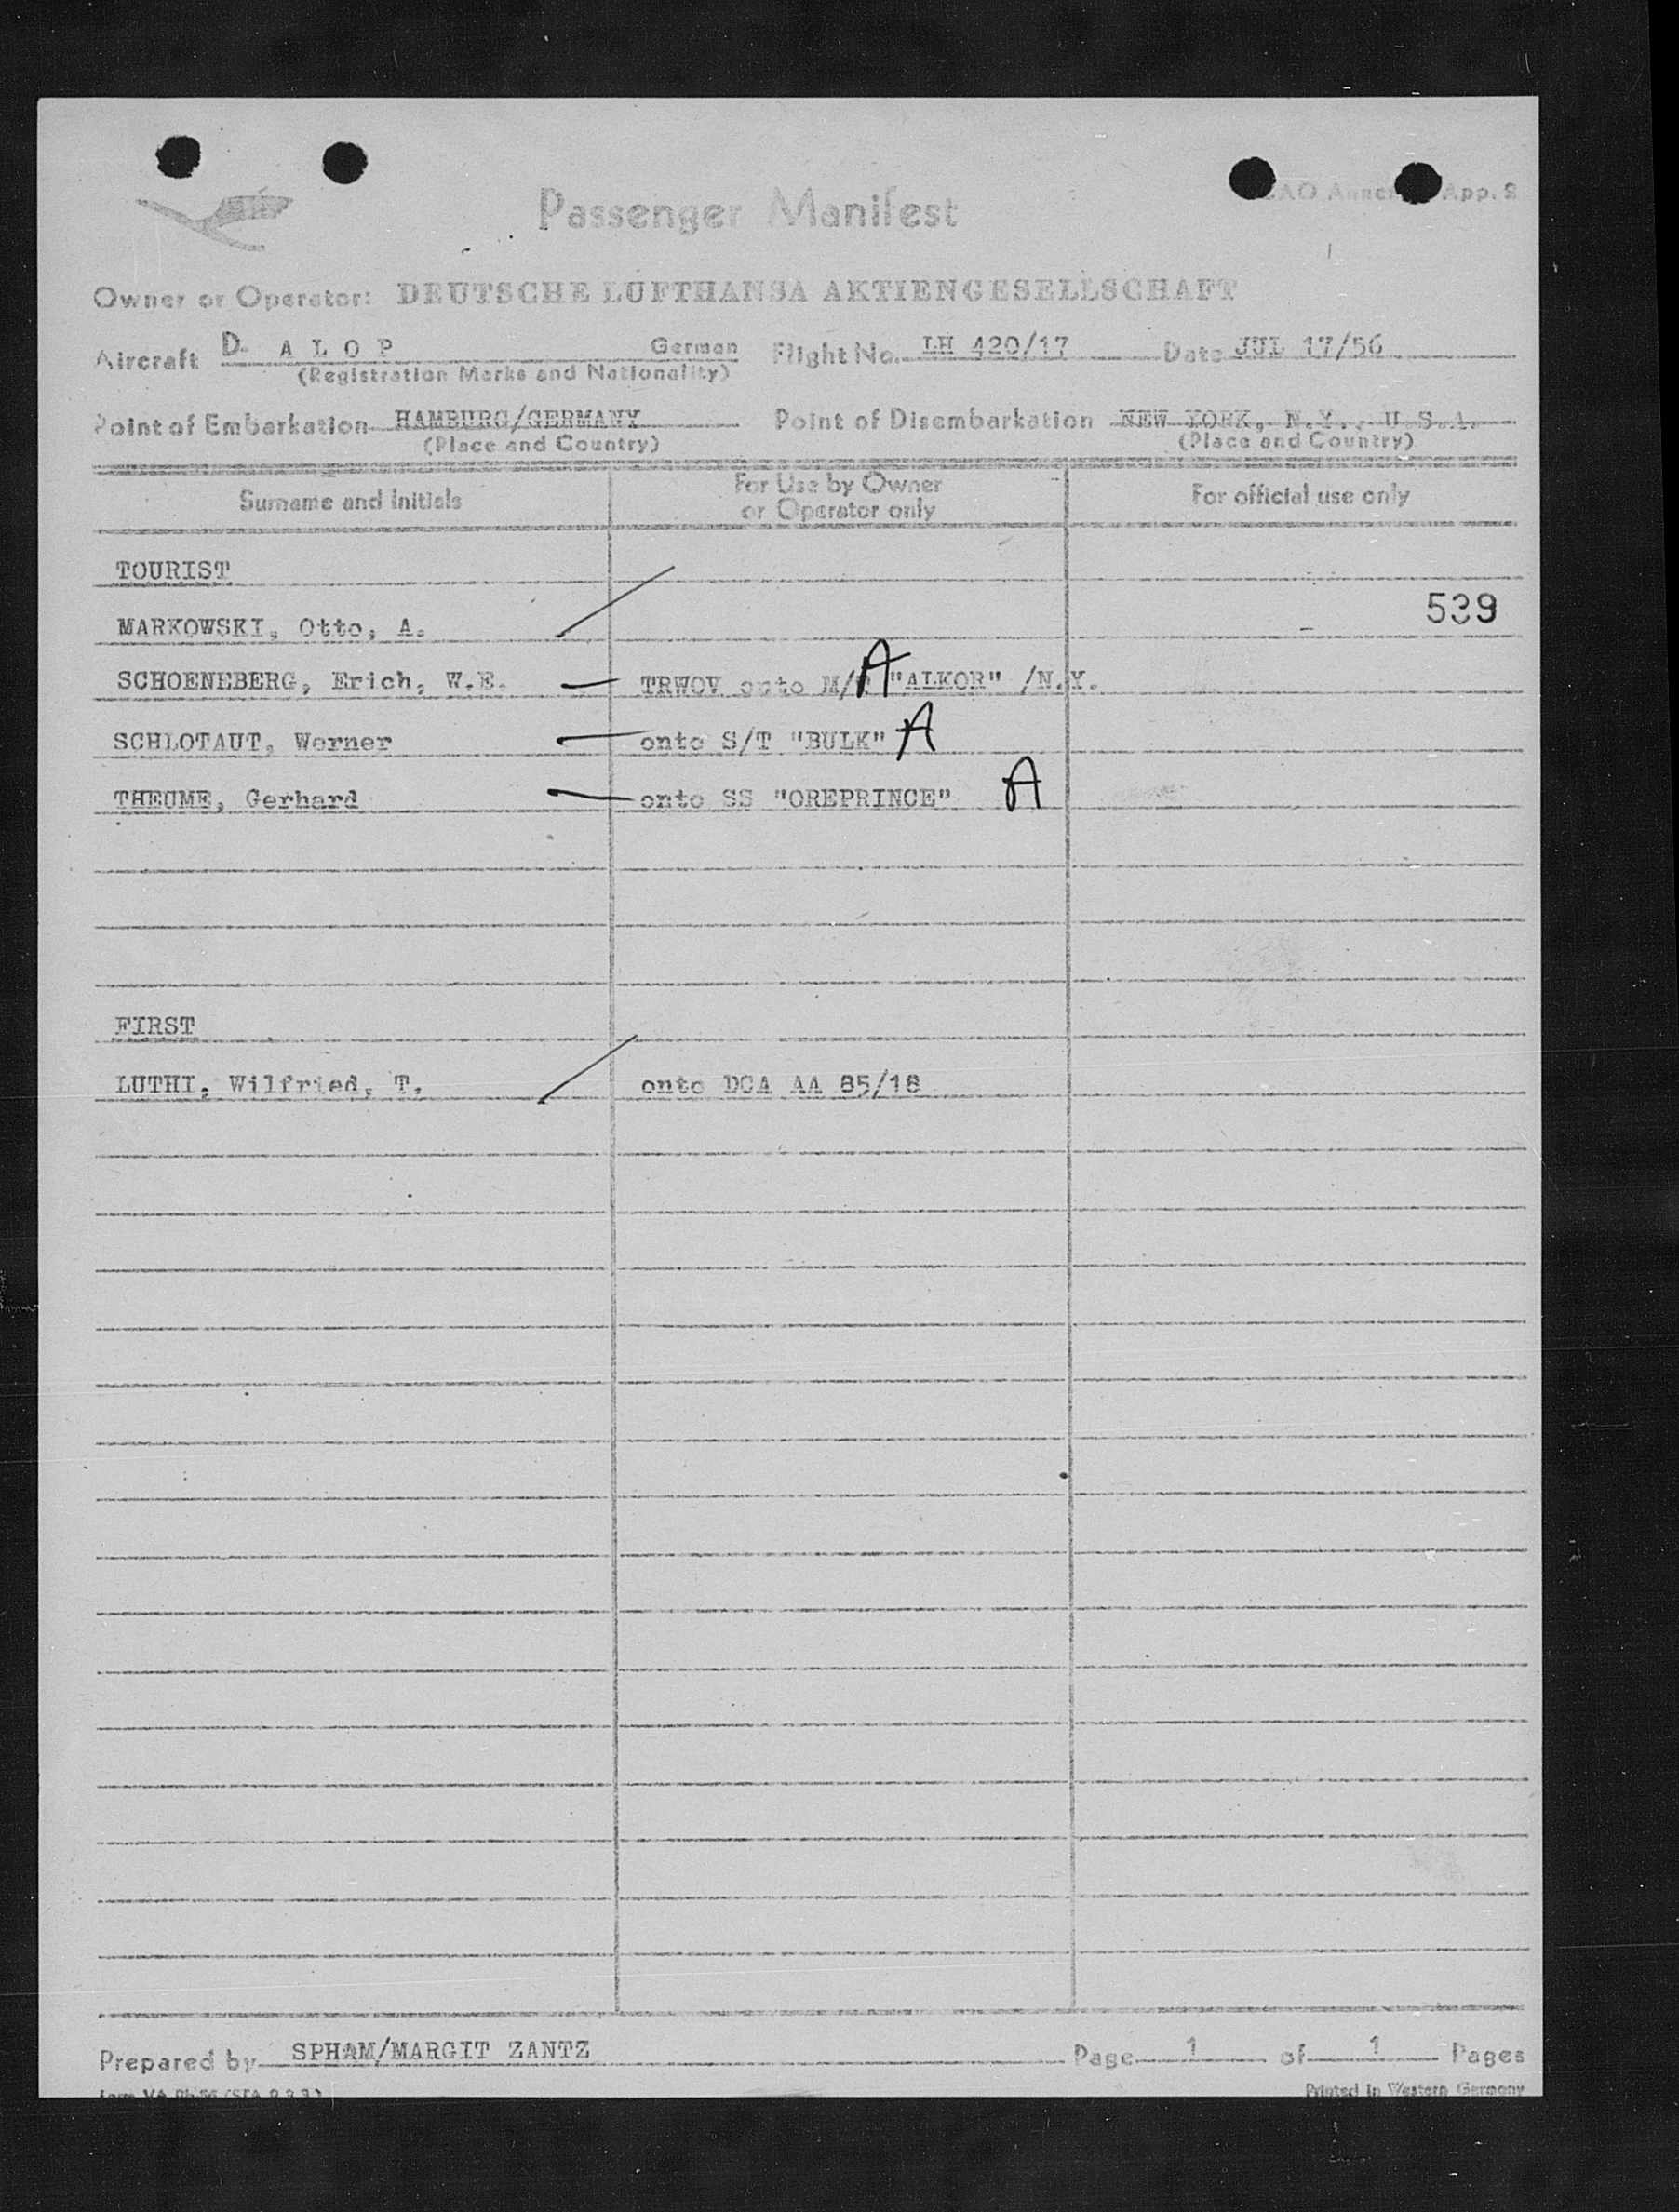 Passenger Manifest
App. 2
Owner or Operator: DEUTSCHE LUFTHANSA AKTIENGESELLSCHAFT
Aircraft D- A L O P German Flight No. LH 420/17 Date JUL 17/56
(Registration Marks and Nationality)
Point of Embarkation HAMBURG/GERMANY Point of Disembarkation NEW YORK, N.Y., U.S.A.
(Place and Country) (Place and Country)
Surname and Initials For Use by Owner or Operator only For official use only
TOURIST
539
MARKOWSKI, Otto, A.
SCHOENEBERG, Erich, W.E. TRWOV onto A "ALKOR" /N.Y.
SCHLOTAUT, Werner onto S/T "BULK" A
THEUME, Gerhard onto SS "OREPRINCE" A
FIRST
LUTHI, Wilfried, T. onto DCA AA 85/18
Prepared by SPHAM/MARGIT ZANTZ Page 1 of 1 Pages
Printed in Western Germany